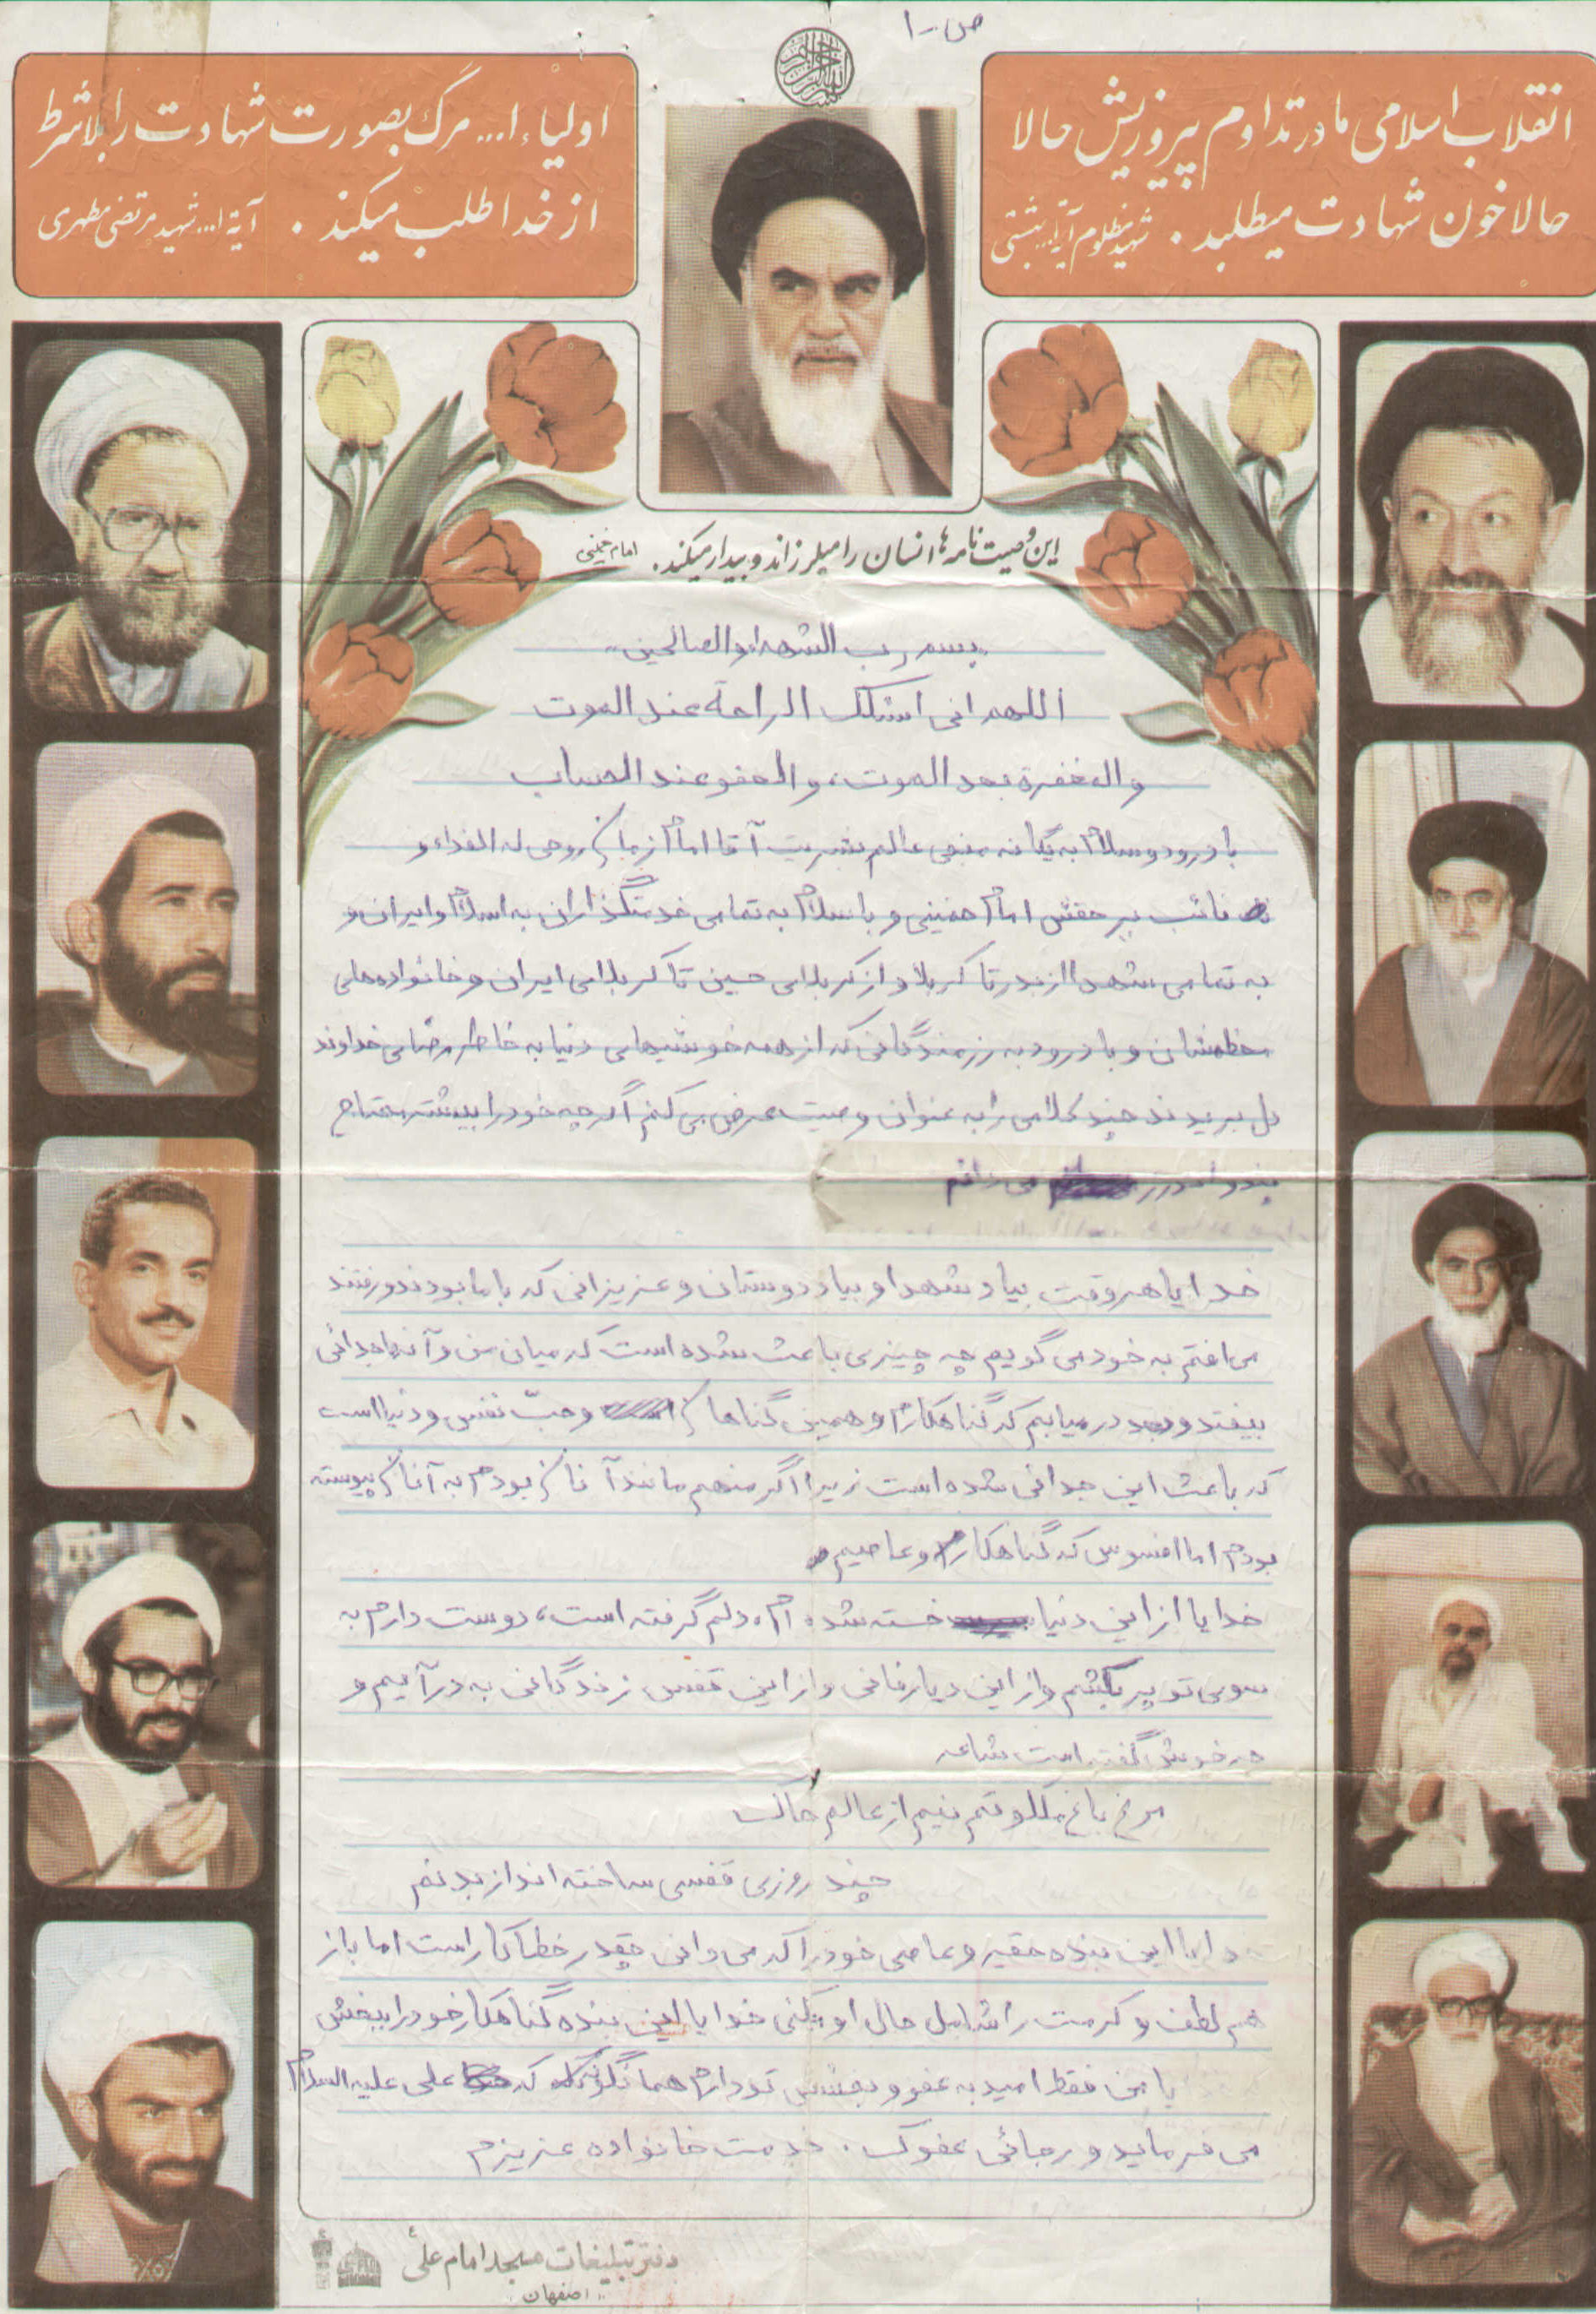 ص-۱
انقلاب اسلامی ما در تداوم پیروزیش حالا
حالا خون شهادت میطلبد . شهید مظلوم آیة... بهشتی
اولیاء ا... مرگ بصورت شهادت را بلاشرط
از خدا طلب میکند . آیة ا... شهید مرتضی مطهری
این وصیت نامه ها انسان را میلرزاند و بیدار میکند . امام خمینی
بسم رب الشهداء والصالحین
اللهم انی اسئلک الراحة عند الموت
والمغفرة بعد الموت، و العفو عند الحساب
با درود و سلام به یگانه منجی عالم بشریت آقا امام زمان روحی له الفداء و
نائب بر حقش امام خمینی و با سلام به تمامی خدمتگذاران به اسلام و ایران و
به تمامی شهدا از بدر تا کربلا و از کربلای حسین تا کربلای ایران و خانواده های
معظمشان و با درود به رزمندگانی که از همه خوشیهای دنیا به خاطر رضای خداوند
دل بریدند چند کلامی را به عنوان وصیت عرض می کنم اگر چه خود را بیشتر محتاج
پند و اندرز می دانم
خدایا هر وقت بیاد شهدا و بیاد دوستان و عزیزانی که با ما بودند و رفتند
می افتم به خود می گویم چه چیزی باعث شده است که میان من و آنها جدائی
بیفتد و بعد در میابم که گناهکارم و همین گناهان و حبّ نفس و دنیا است
که باعث این جدائی شده است زیرا اگر منهم مانند آنان بودم به آنان پیوسته
بودم اما افسوس که گناهکارم و عاصیم
خدایا از این دنیا خسته شده ام، دلم گرفته است، دوست دارم به
سوی تو پر بکشم و از این دیار فانی و از این قفس زندگانی به در آیم و
چه خوش گفته است شاعر
مرغ باغ ملکوتم نیم از عالم خاک
چند روزی قفسی ساخته اند از بدنم
خدایا این بنده حقیر و عاصی خود را که می دانی چقدر خطاکار است اما باز
هم لطف و کرمت را شامل حال او بکنی خدایا این بنده گناهکار خود را ببخش
یا من فقط امید به عفو و بخشش تو دارم همانگونه که علی علیه السلام
می فرماید و رجائی عفوک . خدمت خانواده عزیزم
دفتر تبلیغات مسجد امام علی
اصفهان